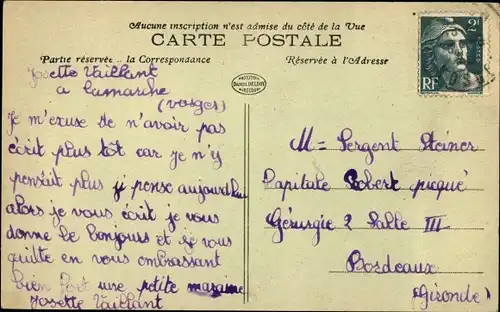 Aucune inscription n'est admise du côté de la Vue
CARTE POSTALE
Partie réservée à la Correspondance
Réservée à l'Adresse
2F
POSTES
RF
Josette Vaillant
a Lamarche
(vosges)
Je m'exuse de n'avoir pas
écrit plus tôt car je n'y
pensait plus j'i pense aujourdhui
alors je vous écrit je vous
donne le bonjours et je vous
quitte en vous embrassant
bien fort une petite maraine
Josette Vaillant
M= Sergent Steiner
Robert piqué
2 Salle III
Bordeaux
(Gironde)